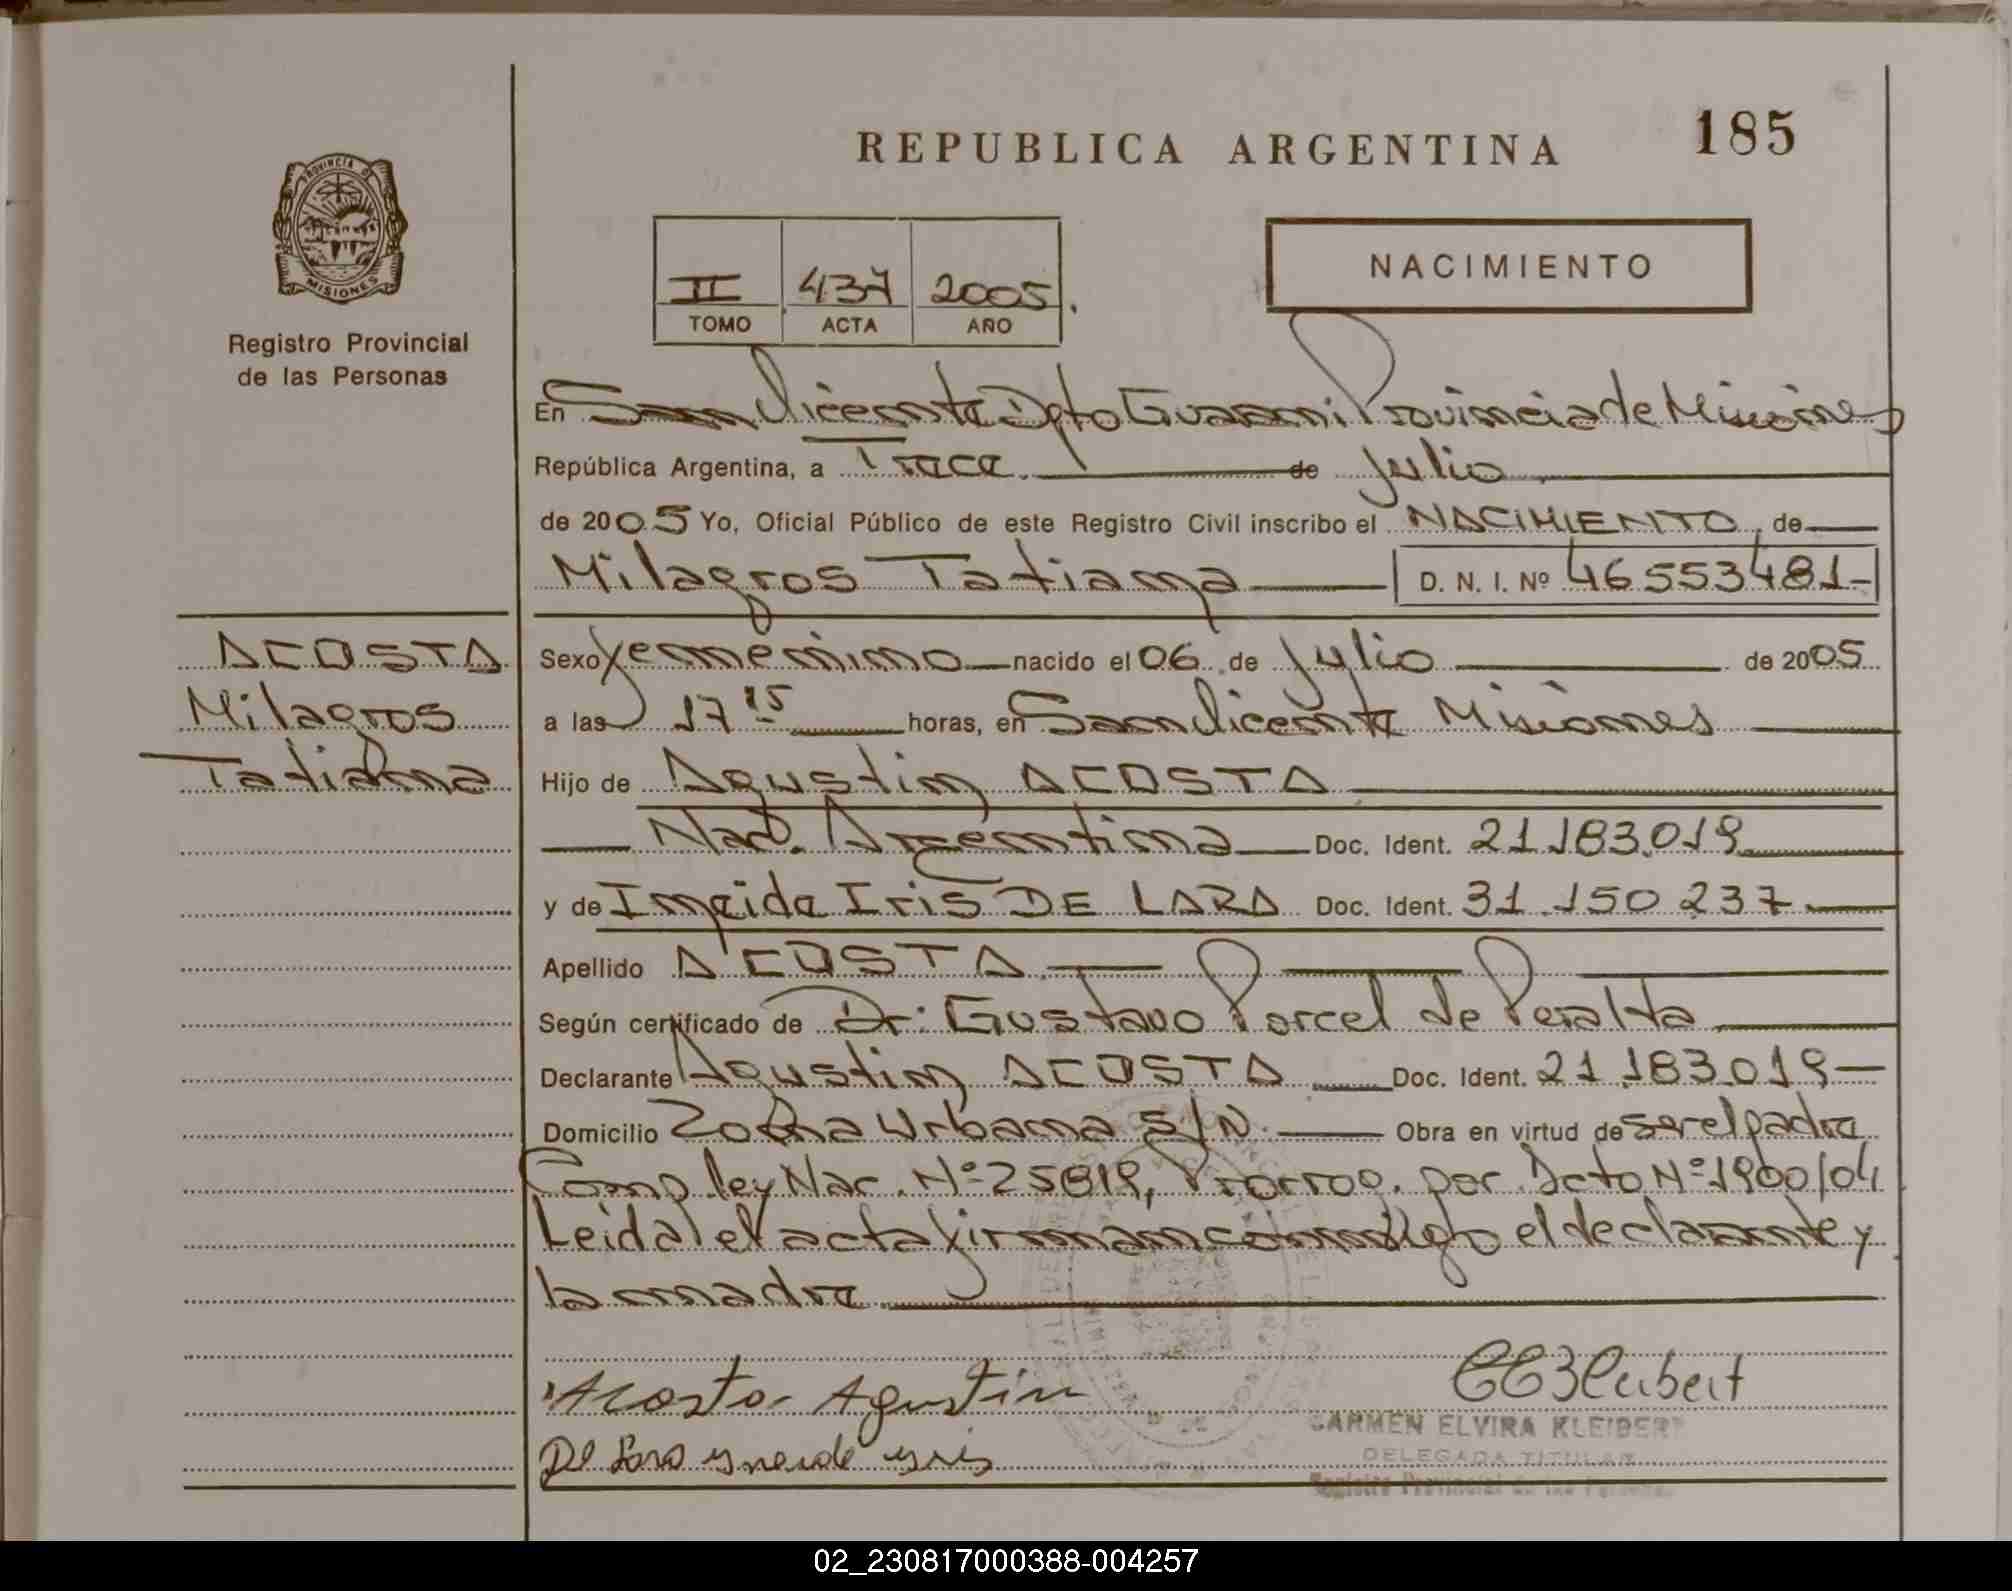 REPUBLICA ARGENTINA 185
PROVINCIA DE
MISIONES
Registro Provincial
de las Personas
NACIMIENTO
II 437 2005.
TOMO ACTA AÑO
En San Vicente Dpto Guarani Provincia de Misiones
República Argentina, a Trece de Julio
de 2005 Yo, Oficial Público de este Registro Civil inscribo el NACIMIENTO, de
Milagros Tatiana D. N. I. Nº 46553481-
ACOSTA
Milagros
Tatiana
Sexo femenino nacido el 06 de Julio de 2005
a las 17 15 horas, en San Vicente Misiones
Hijo de Agustin ACOSTA
Nac. Argentina Doc. Ident. 21.183.019
y de Ineida Iris DE LARA Doc. Ident. 31.150.237
Apellido ACOSTA
Según certificado de Dr: Gustavo Porcel de Peralta
Declarante Agustin ACOSTA Doc. Ident. 21.183.019
Domicilio Zona Urbana S/N. Obra en virtud de ser el padre
Comp. ley Nac. Nº 25819, Prorrog. por Dcto Nº 1900/04
Leida el acta firman conmigo el declarante y
la madre
Acosta Agustin
De Lara yneide yris
CARMEN ELVIRA KLEIBERT
DELEGADA TITULAR
Registro Provincial de las Personas
02_230817000388-004257